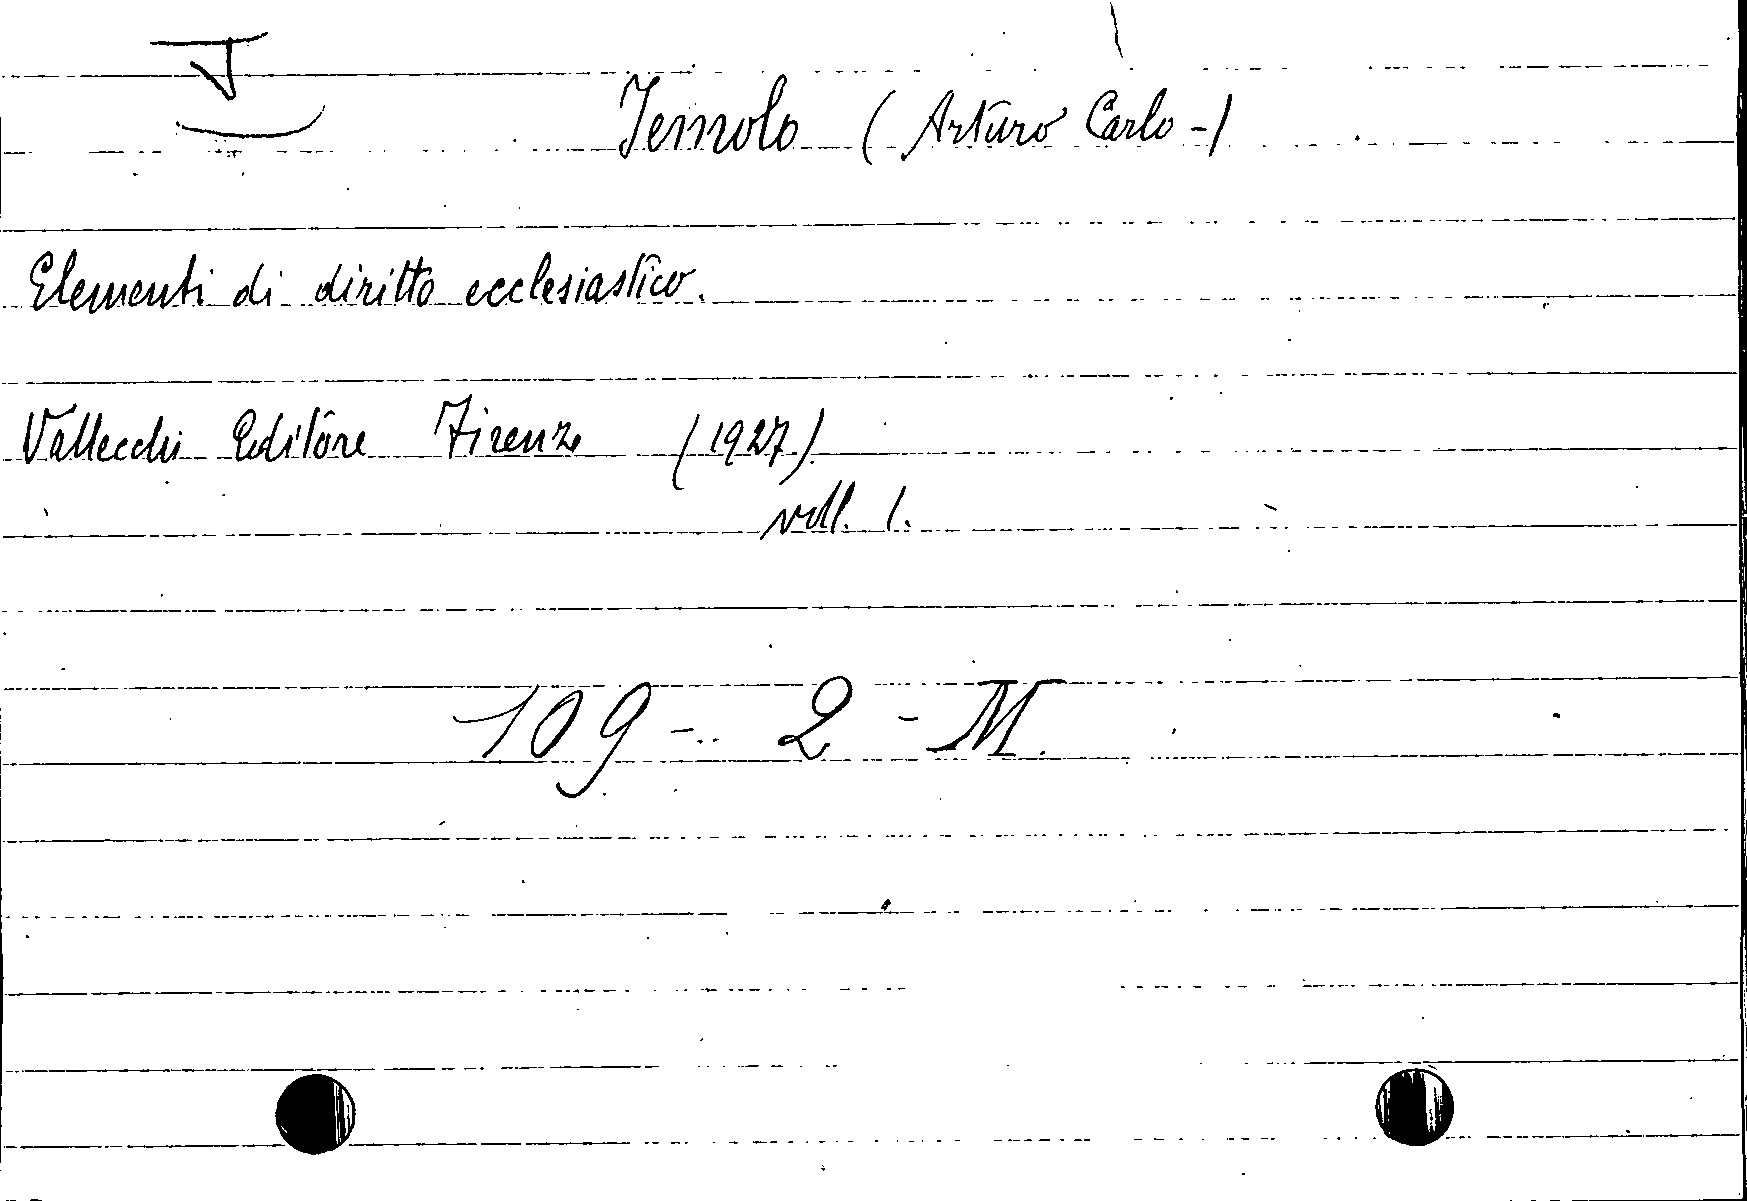 J
Jemolo (Arturo Carlo -)
Elementi di diritto ecclesiastico.
Vallecchi Editore Firenze (1927)
voll. 1.
109 - 2 - M.